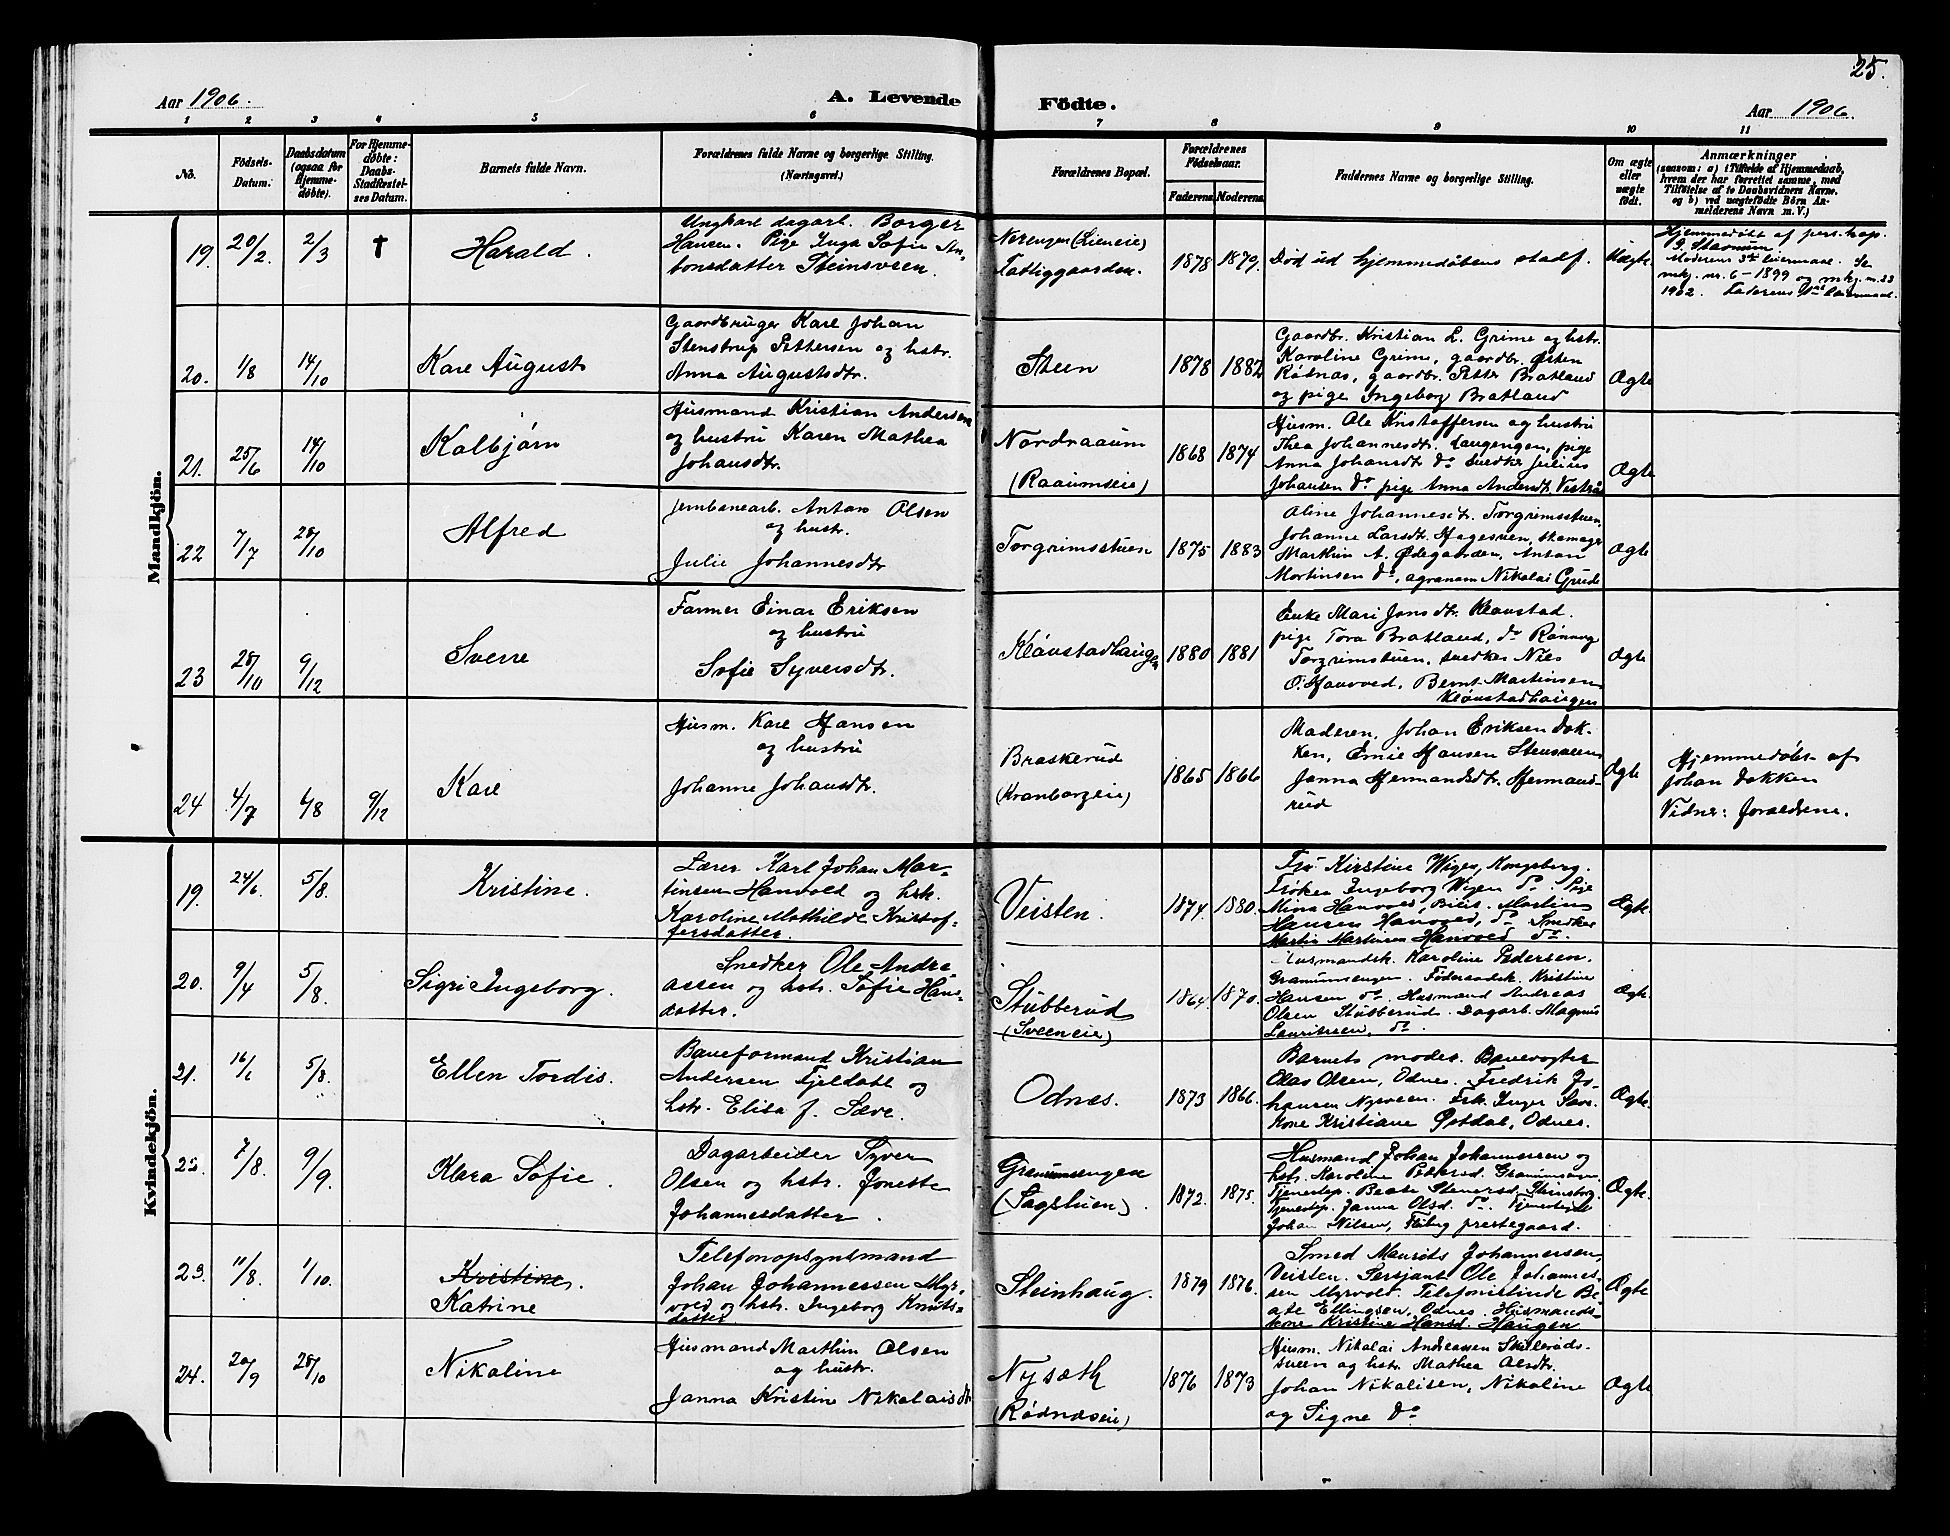 25.
Aar 1906.
A. Levende
Födte.
Aar 1906.
1 2 3 4 5 6 7 8 9 10 11
No.
Födsels-
Datum.
Daabsdatum
(ogsaa for
Hjemme-
døbte).
For Hjemme-
døbte:
Daabs-
Stadfæstel-
ses Datum.
Barnets fulde Navn.
Forældrenes fulde Navne og borgerlige Stilling.
(Næringsvei.)
Forældrenes Bopæl.
Forældrenes
Födselsaar.
Faderens. Moderens.
Faddernes Navne og borgerlige Stilling.
Om ægte
eller
uægte
födt.
Anmærkninger
(saasom: a) i Tilfælde af Hjemmedaab,
hvem der har forrettet samme, med
Tilföielse af to Daabsvidners Navne,
og b) ved uægtefödte Börn An-
melderens Navn m. V.)
Mandkjön.
19. 20/2 2/3 † Harald.
Ungkarl dagarb. Borger
Hansen. Pige Inga Sofie An-
tonsdatter Steinsveen.
Nerengen (Lieneie)
Fattiggaarden.
1878 1879.
Død ud hjemmedøbens stadf.
Uægte
Hjemmedøbt af pers. kap.
Moderens 3die leiermaal. Se
mkj. nr. 6 - 1899 og mkj. nr. 23
1902. Faderens leiermaal.
20. 1/8 14/10 Karl August
Gaardbruger Karl Johan
Stenstrup Pettersen og hstr.
Anna Augustsdtr.
Steen
1878 1882
Gaardbr. Kristian L. Grime og hstr.
Karoline Grime, gaardbr. Østen
Rødnæs, gaardbr. Petter Bratland
og pige Ingeborg Bratland
Ægte
21. 25/6 14/10 Kolbjørn
Husmand Kristian Andersen
og hustru Karen Mathea
Johansdtr.
Nordraaum
(Raaumseie)
1868 1874
Husm. Ole Kristoffersen og hustru
Thea Johannesdtr. Haugengen, pige
Anna Johansdtr do snedker Julius
Johansen do pige Anna Andersdtr.
Ægte
22 7/7 28/10 Alfred
Jernbanearb. Anton Olsen
og hustr.
Julie Johannesdtr
Torgrimsstuen
1875 1883
Oline Johannesdtr. Torgrimsstuen,
Johanne Larsdtr Hagesveen, skomager
Marthin A. Ødegaarden, Anton
Mortinsen do, agronom Nikolai Grude
Ægte
23 28/10 9/12 Sverre
Farmer Einar Eriksen
og hustru
Sofie Syversdtr.
Kløvstadhaugen
1880 1881
Enke Mari Jonsdtr. Kløvstad.
pige Tora Bratland, do Rønnaug
Torgrimstuen, snedker Nils
O. Hanvold, Bernt Martinsen
Kløvstadhaugen
Ægte
24 4/7 6/8 9/12 Karl
Husm. Karl Hansen
og hustru
Johanne Johansdtr.
Braskerud
(Kranborgeie)
1865 1866
Moderen, Johan Eriksen Dok-
ken, Emil Hansen
Janna Hermandsdtr. Hermand-
rud
Ægte
Hjemmedøbt af
Johan Dokken
Vidner: forældrene.
Kvindekjön.
19. 24/6. 5/8. Kristine.
Lærer Karl Johan Mar-
tinsen Hanvold og hsk.
Karoline Mathilde Kristof-
fersdatter.
Veisten.
1874. 1880.
Fru Kirstine Wiger, Kongsberg.
Frøken Ingeborg Wigen do. Pige
Mina Hanvold, Biri. Martinus
Hansen Hanvold, do. Snedker
Martin Martinsen Hanvold do.
Ægte.
20. 9/4 5/8. Sigri Ingeborg.
Snedker Ole Andre-
assen og hstr. Sofie Hans-
datter.
Stubberud
(Sveeneie)
1864. 1870.
Husmandsk. Karoline Pedersen.
Granumsengen. Føderaadsk. Kristine
Hansen do. Husmand Andreas
Olsen Stubberud. Dagarb. Magnus
Lauritsen, do.
Ægte.
21. 16/6 5/8. Ellen Tordis.
Baneformand Kristian
Andersen Fjeldall og
hstr. Elisa f. Sæve.
Odnes.
1873 1866.
Barnets moder. Banevogter
Olas Olsen, Odnes. Fredrik Jo-
hansen Nysveen. Frk. Inger Sæve.
Kone Kristiane Østdal, Odnes.
Ægte.
22. 7/8. 9/9. Klara Sofie.
Dagarbeider Syver
Olsen og hstr. Jonette
Johannesdatter.
Granumsengen
(Sagstuen).
1872. 1875.
Husmand Johan Johannessen og
hstr. Karoline Pedersd. Granumsen.
Tjenestep. Beate Stenersd. Steinsborg.
Tjenestep. Janna Olsd. do. Tjenestedr.
Johan Nilsen, Fluberg prestegaard.
Ægte.
23. 11/8. 1/10. Kristine.
Katrine
Telefonopsynsmand
Johan Johannessen Myr-
vold og hstr. Ingeborg Knuts-
datter
Steinhaug.
1879 1876.
Smed Maurits Johannessen,
Veisten. Sersjant Ole Johannes-
sen Myrvold. Telefonistinde Be-
ate Ellingsen, Odnes. Husmands-
kone Kristine Hansd. Haugen
Ægte
24. 20/9 28/10 Nikoline
Husmand Marthin Olsen
og hustr.
Janna Kristine Nikolaisdtr
Nysæth
(Rødnæseie)
1876 1873
Husm. Nikolai Andreassen Skillerüds-
sveen og hstr. Mathea Olsdtr.
Johan Nikolisen, Nikoline
og Signe do
Ægte